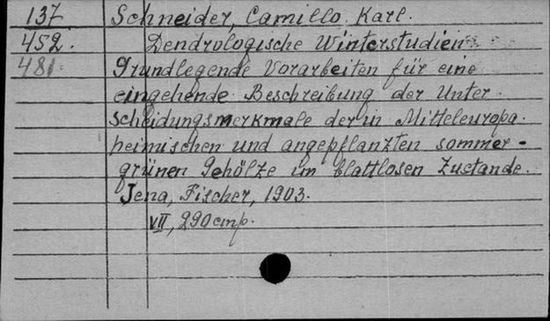 137 Schneider, Camillo Karl.
452. Dendrologische Winterstudien
481. Grundlegende Vorarbeiten für eine
eingehende Beschreibung der Unter-
scheidungsmerkmale der in Mitteleuropa
heimischen und angepflanzten sommer-
grünen Gehölze im blattlosen Zustande.
Jena, Fischer, 1903.
VII, 290 стр.